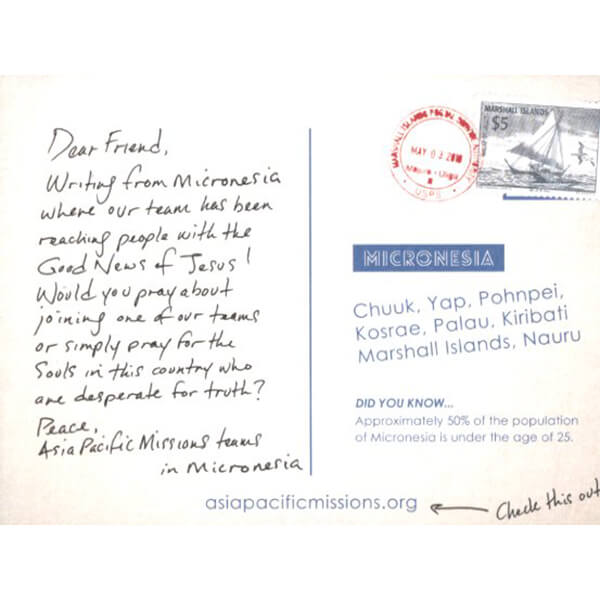 Dear Friend,
Writing from Micronesia
where our team has been
reaching people with the
Good News of Jesus!
Would you pray about
joining one of our teams
or simply pray for the
Souls in this country who
are desperate for truth?
Peace,
Asia Pacific Missions teams
in Micronesia
MARSHALL ISLANDS POSTAL SERVICE
MAY 03 2018
USPS
MARSHALL ISLANDS
$5
MICRONESIA
Chuuk, Yap, Pohnpei,
Kosrae, Palau, Kiribati
Marshall Islands, Nauru
DID YOU KNOW...
Approximately 50% of the population
of Micronesia is under the age of 25.
asiapacificmissions.org
Check this out